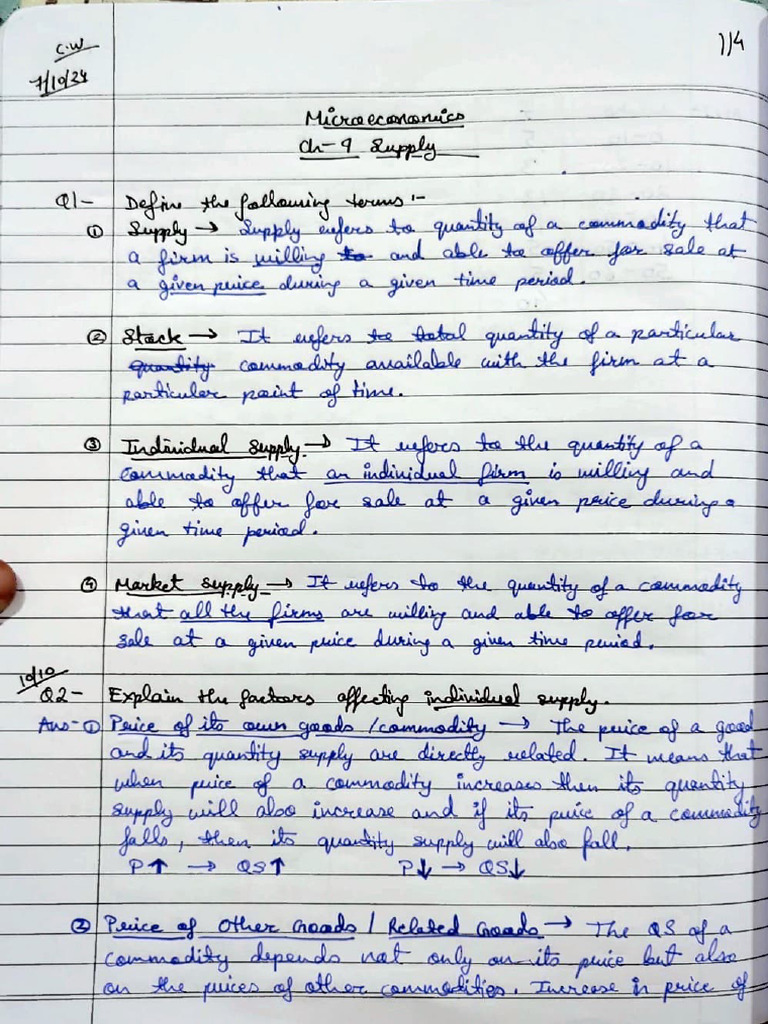 C.W
7/10/24
114
Microeconomics
Ch-9 Supply
Q1- Define the following terms :-
① Supply → Supply refers to quantity of a commodity that
a firm is willing to and able to offer for sale at
a given price during a given time period.
② Stock → It refers to total quantity of a particular
quantity commodity available with the firm at a
particular point of time.
③ Individual supply → It refers to the quantity of a
commodity that an individual firm is willing and
able to offer for sale at a given price during a
given time period.
④ Market supply → It refers to the quantity of a commodity
that all the firms are willing and able to offer for
sale at a given price during a given time period.
10/10
Q2- Explain the factors affecting individual supply.
Ans-① Price of its own goods /commodity → The price of a good
and its quantity supply are directly related. It means that
when price of a commodity increases then its quantity
supply will also increase and if its price of a commodity
falls, then its quantity supply will also fall.
P↑ → QS↑ P↓ → QS↓
② Price of Other Goods / Related Goods → The QS of a
commodity depends not only on its price but also
on the prices of other commodities. Increase in price of